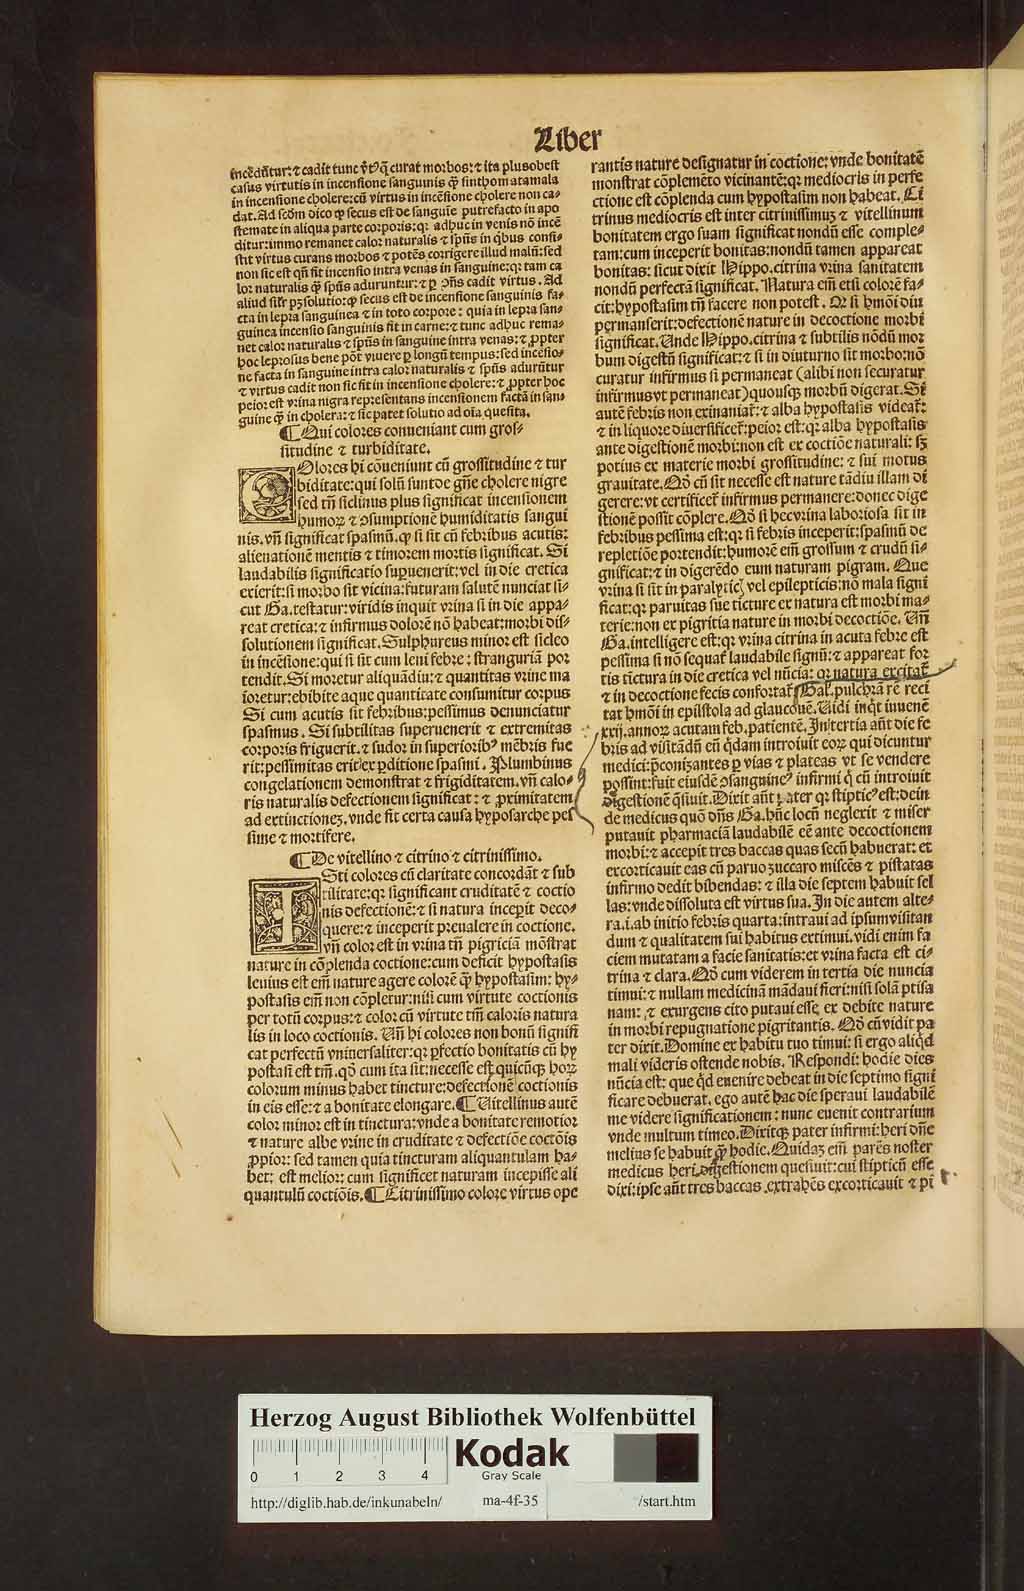 Liber
incẽdũtur: ⁊ cadit tunc v̾tꝰ q̃ curat morbos: ⁊ ita plus obest
casus virtutis in incensione sanguinis q̃ sinthomatamala
in incensione cholere: cũ virtus in incẽsione cholere non ca-
dat. Ad scďm dico ꝙ secus est de sanguĩe putrefacto in apo
stemate in aliqua parte corporis: qꝛ adhuc in venis nõ incẽ
ditur: immo remanet calor naturalis ⁊ sp̃ũs in qͥbus consi-
stit virtus curans morbos ⁊ potẽs corrigere illud malũ: sed
non sic est qñ fit incensio intra venas in sanguine: qꝛ tam ca
lor naturalis q̃ sp̃ũs aduruntur: ⁊ ꝑ ↄ̃ñs cadit virtus. Ad
aliud sil̃r pꝫ solutio: ꝙ secus est de incensione sanguinis fa-
cta in lepra sanguinea ⁊ in toto corpore: quia in lepra san-
guinea incensio sanguinis fit in carne: ⁊ tunc adhuc rema-
net calor naturalis ⁊ sp̃ũs in sanguine intra venas: ⁊ ꝓpter
hoc leprosus bene põt viuere ꝑ longũ tempus: sed incẽsio-
ne facta in sanguine intra calor naturalis ⁊ sp̃ũs adurũtur
⁊ virtus cadit non sic fit in incensione cholere: ⁊ ꝓpter hoc
peior est vrina nigra representans incensionem factã in san-
guine q̃ in cholera: ⁊ sic patet solutio ad oĩa quesita.
¶ Qui colores conueniant cum gros-
situdine ⁊ turbiditate.
COlores hi cõueniunt cũ grossitudine ⁊ tur
biditate: qui solũ suntde gñe cholere nigre
sed tñ siclinus plus significat incensionem
humoꝝ ⁊ ↄsumptionẽ humiditatis sangui
nis. vñ significat spasmũ. ꝙ si sit cũ febribus acutis:
alienationẽ mentis ⁊ timorem mortis significat. Si
laudabilis significatio suꝑuenerit: vel in die cretica
exierit: si morbo sit vicina: futuram salutẽ nunciat si-
cut Ga. testatur: viridis inquit vrina si in die appa-
reat cretica: ⁊ infirmus dolorẽ nõ habeat: morbi dis-
solutionem significat. Sulphureus minor est sicleo
in incẽsione: qui si sit cum leui febre: stranguriã por
tendit. Si moretur aliquãdiu: ⁊ quantitas vrine ma
ior etur: ebibite aque quantitate consumitur corpus
Si cum acutis sit febribus: pessimus denunciatur
spasmus. Si subtilitas superuenerit ⁊ extremitas
corporis friguerit. ⁊ sudor in superioribꝰ mẽbris fue
rit: pessimitas erit ex ꝑditione spasmi. Plumbinus
congelationem demonstrat ⁊ frigiditatem. vñ calo-
ris naturalis defectionem significat: ⁊ ꝓximitatem
ad extinctionẽ. vnde fit certa causa hyposarche pes
sime ⁊ mortifere.
¶ De vitellino ⁊ citrino ⁊ citrinissimo.
ISti colores cũ claritate concordãt ⁊ sub
tilitate: qꝛ significant cruditatẽ ⁊ coctio
nis defectionẽ: ⁊ si natura incepit deco-
quere: ⁊ inceperit preualere in coctione.
vñ color est in vrina tñ pigriciã mõstrat
nature in cõplenda coctione: cum deficit hypostasis
leuius est em̃ nature agere colorẽ q̃ hypostasim: hy-
postasis em̃ non cõpletur: nisi cum virtute coctionis
per totũ corpus: ⁊ color cũ virtute tm̃ caloris natura
lis in loco coctionis. Vñ hi colores non bonũ signifi
cat perfectũ vniuersaliter: qꝛ ꝑfectio bonitatis cũ hy
postasi est tm̃. qď cum ita sit: necesse est quicũqꝫ hoꝝ
colorum minus habet tincture: defectionẽ coctionis
in eis esse: ⁊ a bonitate elongare. ¶ Vitellinus autẽ
color minor est in tinctura: vnde a bonitate remotior
⁊ nature albe vrine in cruditate ⁊ defectiõe coctõis
ꝓpior: sed tamen quia tincturam aliquantulam ha-
bet: est melior: cum significet naturam incepisse ali
quantulũ coctiõis. ¶ Citrinissimo colore virtus ope
rantis nature designatur in coctione: vnde bonitatẽ
monstrat cõplemẽto vicinantẽ: qꝛ mediocris in perfe
ctione est cõplenda cum hypostasim non habeat. Ci
trinus mediocris est inter citrinissimuꝫ ⁊ vitellinum
bonitatem ergo suam significat nondũ esse comple-
tam: cum inceperit bonitas: nondũ tamen appareat
bonitas: sicut dixit Hippo. citrina vrina sanitatem
nondũ perfectã significat. Natura em̃ etsi colorẽ fa-
cit: hypostasim tñ facere non potest. Qꝛ si hmõi diu
permanserit: defectionẽ nature in decoctione morbi
significat. Unde Hippo. citrina ⁊ subtilis nõdũ mor
bum digestũ significat: ⁊ si in diuturno sit morbo: nõ
curatur infirmus si permaneat (alibi non securatur
infirmus vt permaneat) quousqꝫ morbũ digerat. Si
autẽ febris non exinaniat̃: ⁊ alba hypostasis videat̃:
⁊ in liquore diuersificet̃: peior est: qꝛ alba hypostasis
ante digestionẽ morbi: non est ex coctiõe naturali: sꝫ
potius ex materie morbi grossitudine: ⁊ sui motus
grauitate. Qď cũ sit necesse est nature tãdiu illam di
gerere: vt certificet̃ infirmus permanere: donec dige
stionẽ possit cõplere. Qď si hec vrina laboriosa sit in
febribus pessima est: qꝛ si febris inceperit: spasmũ de
repletiõe portendit: humorẽ em̃ grossum ⁊ crudũ si-
gnificat: ⁊ in digerẽdo eum naturam pigram. Que
vrina si sit in paralyticis vel epilepticis: nõ mala signi
ficat: qꝛ paruitas sue ticture ex natura est morbi ma-
terie: non ex pigritia nature in morbi decoctiõe. Vñ
Ga. intelligere est: qꝛ vrina citrina in acuta febre est
pessima si nõ sequat̃ laudabile signũ: ⁊ appareat for
tis tictura in die cretica vel nũcia: qꝛ natura excitat̃
⁊ in decoctione fecis confortat̃. Gal. pulchrã rẽ reci
tat hmõi in epistola ad glaucouẽ. Vidi inq̃t iuuenẽ
xxij. annoꝝ acutam feb. patientẽ. In tertia aũt die fe
bris ad visitãdũ eũ q̃dam introiuit eoꝝ qui dicuntur
medici: p̃conizantes ꝑ vias ⁊ plateas vt se vendere
possint: fuit eiusdẽ ↄsanguineꝰ infirmi q̃ cũ introiuit
digestionẽ q̃siuit. Dixit aũt pater qꝛ stipticꝰ est: dein
de medicus quõ dñs Ga. hũc locũ neglexit ⁊ miser
putauit pharmaciã laudabilẽ eẽ ante decoctionem
morbi: ⁊ accepit tres baccas quas secũ habuerat: et
excorticauit eas cũ paruo zuccaro miscẽs ⁊ pistatas
infirmo dedit bibendas: ⁊ illa die septem habuit sel
las: vnde dissoluta est virtus sua. In die autem alte-
ra. i. ab initio febris quarta: intraui ad ipsum visitan
dum ⁊ qualitatem sui habitus extimui. vidi enim fa
ciem mutatam a facie sanitatis: et vrina facta est ci-
trina ⁊ clara. Qď cum viderem in tertia die nuncia
timui: ⁊ nullam medicinã mãdaui fieri: nisi solã ptisa
nam: ⁊ exurgens cito putaui esse ex debite nature
in morbi repugnatione pigritantis. Qď cũ vidit pa
ter dixit. Domine ex habitu tuo timui: si ergo aliq̃d
mali videris ostende nobis. Respondi: hodie dies
nũcia est: que q̃d euenire debeat in die septimo signi
ficare debuerat. ego autẽ hac die speraui laudabilẽ
me videre significationem: nunc euenit contrarium
vnde multum timeo. Dixitqꝫ pater infirmi: heri dñe
melius se habuit q̃ hodie. Quidaꝫ em̃ parẽs noster
medicus heri digestionem quesiuit: cui stipticũ esse
dixi: ipse aũt tres baccas extrahẽs excorticauit ⁊ pi
Herzog August Bibliothek Wolfenbüttel
0 1 2 3 4
Kodak
Gray Scale
http://diglib.hab.de/inkunabeln/ ma-4f-35 /start.htm